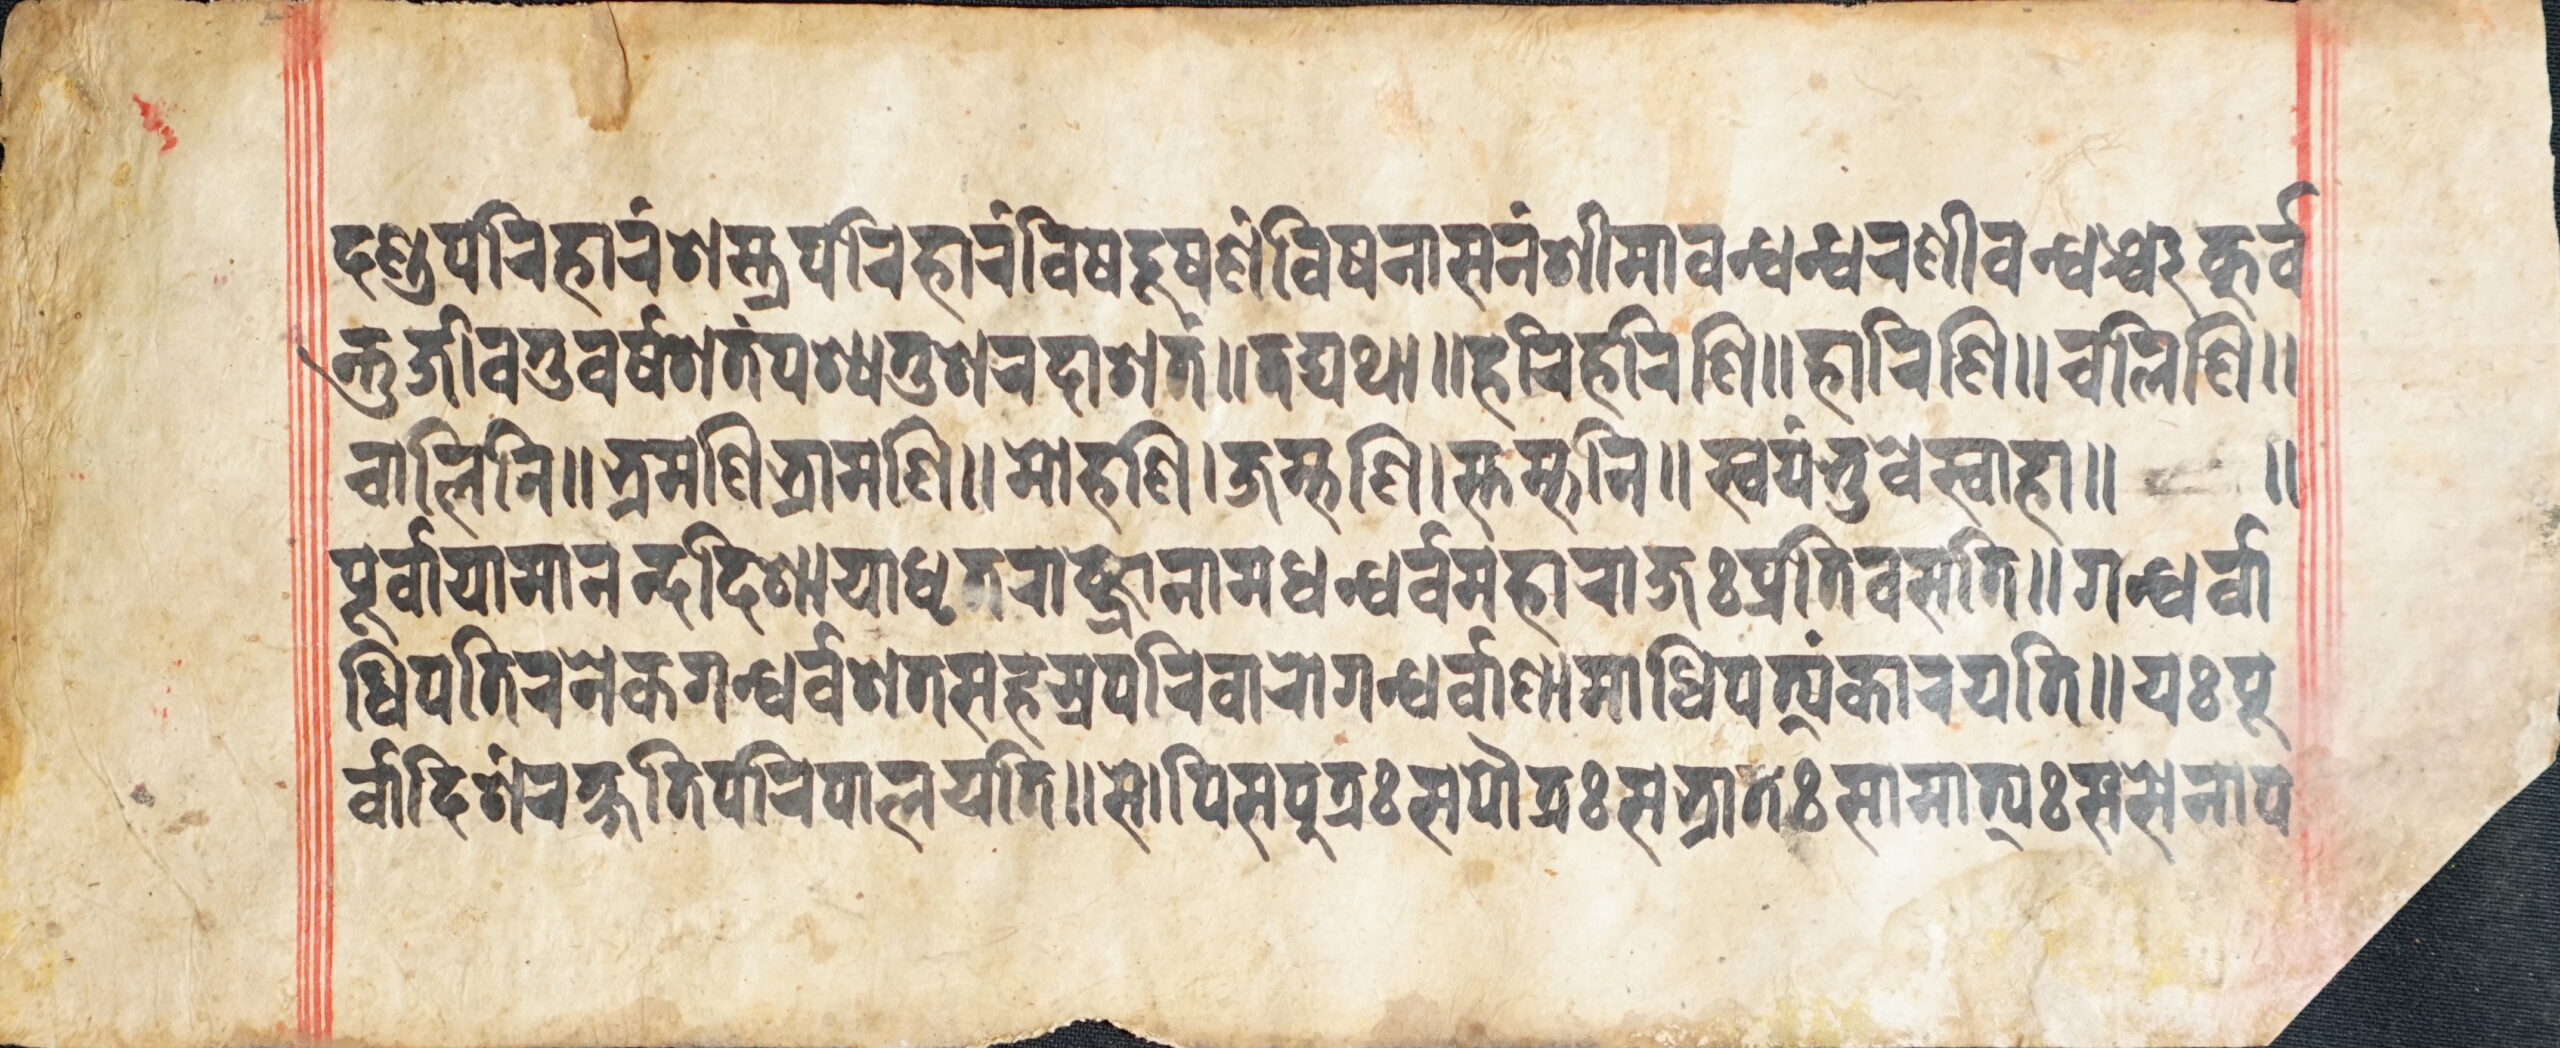 दण्डपरिहारंशस्त्रपरिहारंविषदूषणंविषनासनंशीमावन्धन्धरणीवन्धञ्चकूर्व
न्तुजीवतुवर्षशतंपश्यतुशरदाशतं॥तद्यथा॥हरिहरिणि॥हारिणि॥चलिणि॥
चालिनि॥भ्रमणिभ्रामणि॥मोहणि।जम्भणि।स्तम्भनि॥स्वयंभुवेस्वाहा॥ ॥
पूर्वायामानन्ददिशायाधृतराष्ट्रोनामधन्धर्वमहाराजःप्रतिवसति॥गन्धर्वा
धिपतिरनेकगन्धर्वशतसहस्रपरिवारोगन्धर्वाणामाधिपत्यंकारयति॥यःपू
र्वादिशंरक्षतिपरिपालयति॥सोपिसपुत्रःसपौत्रःसभ्रातःसामात्यःससेनाप